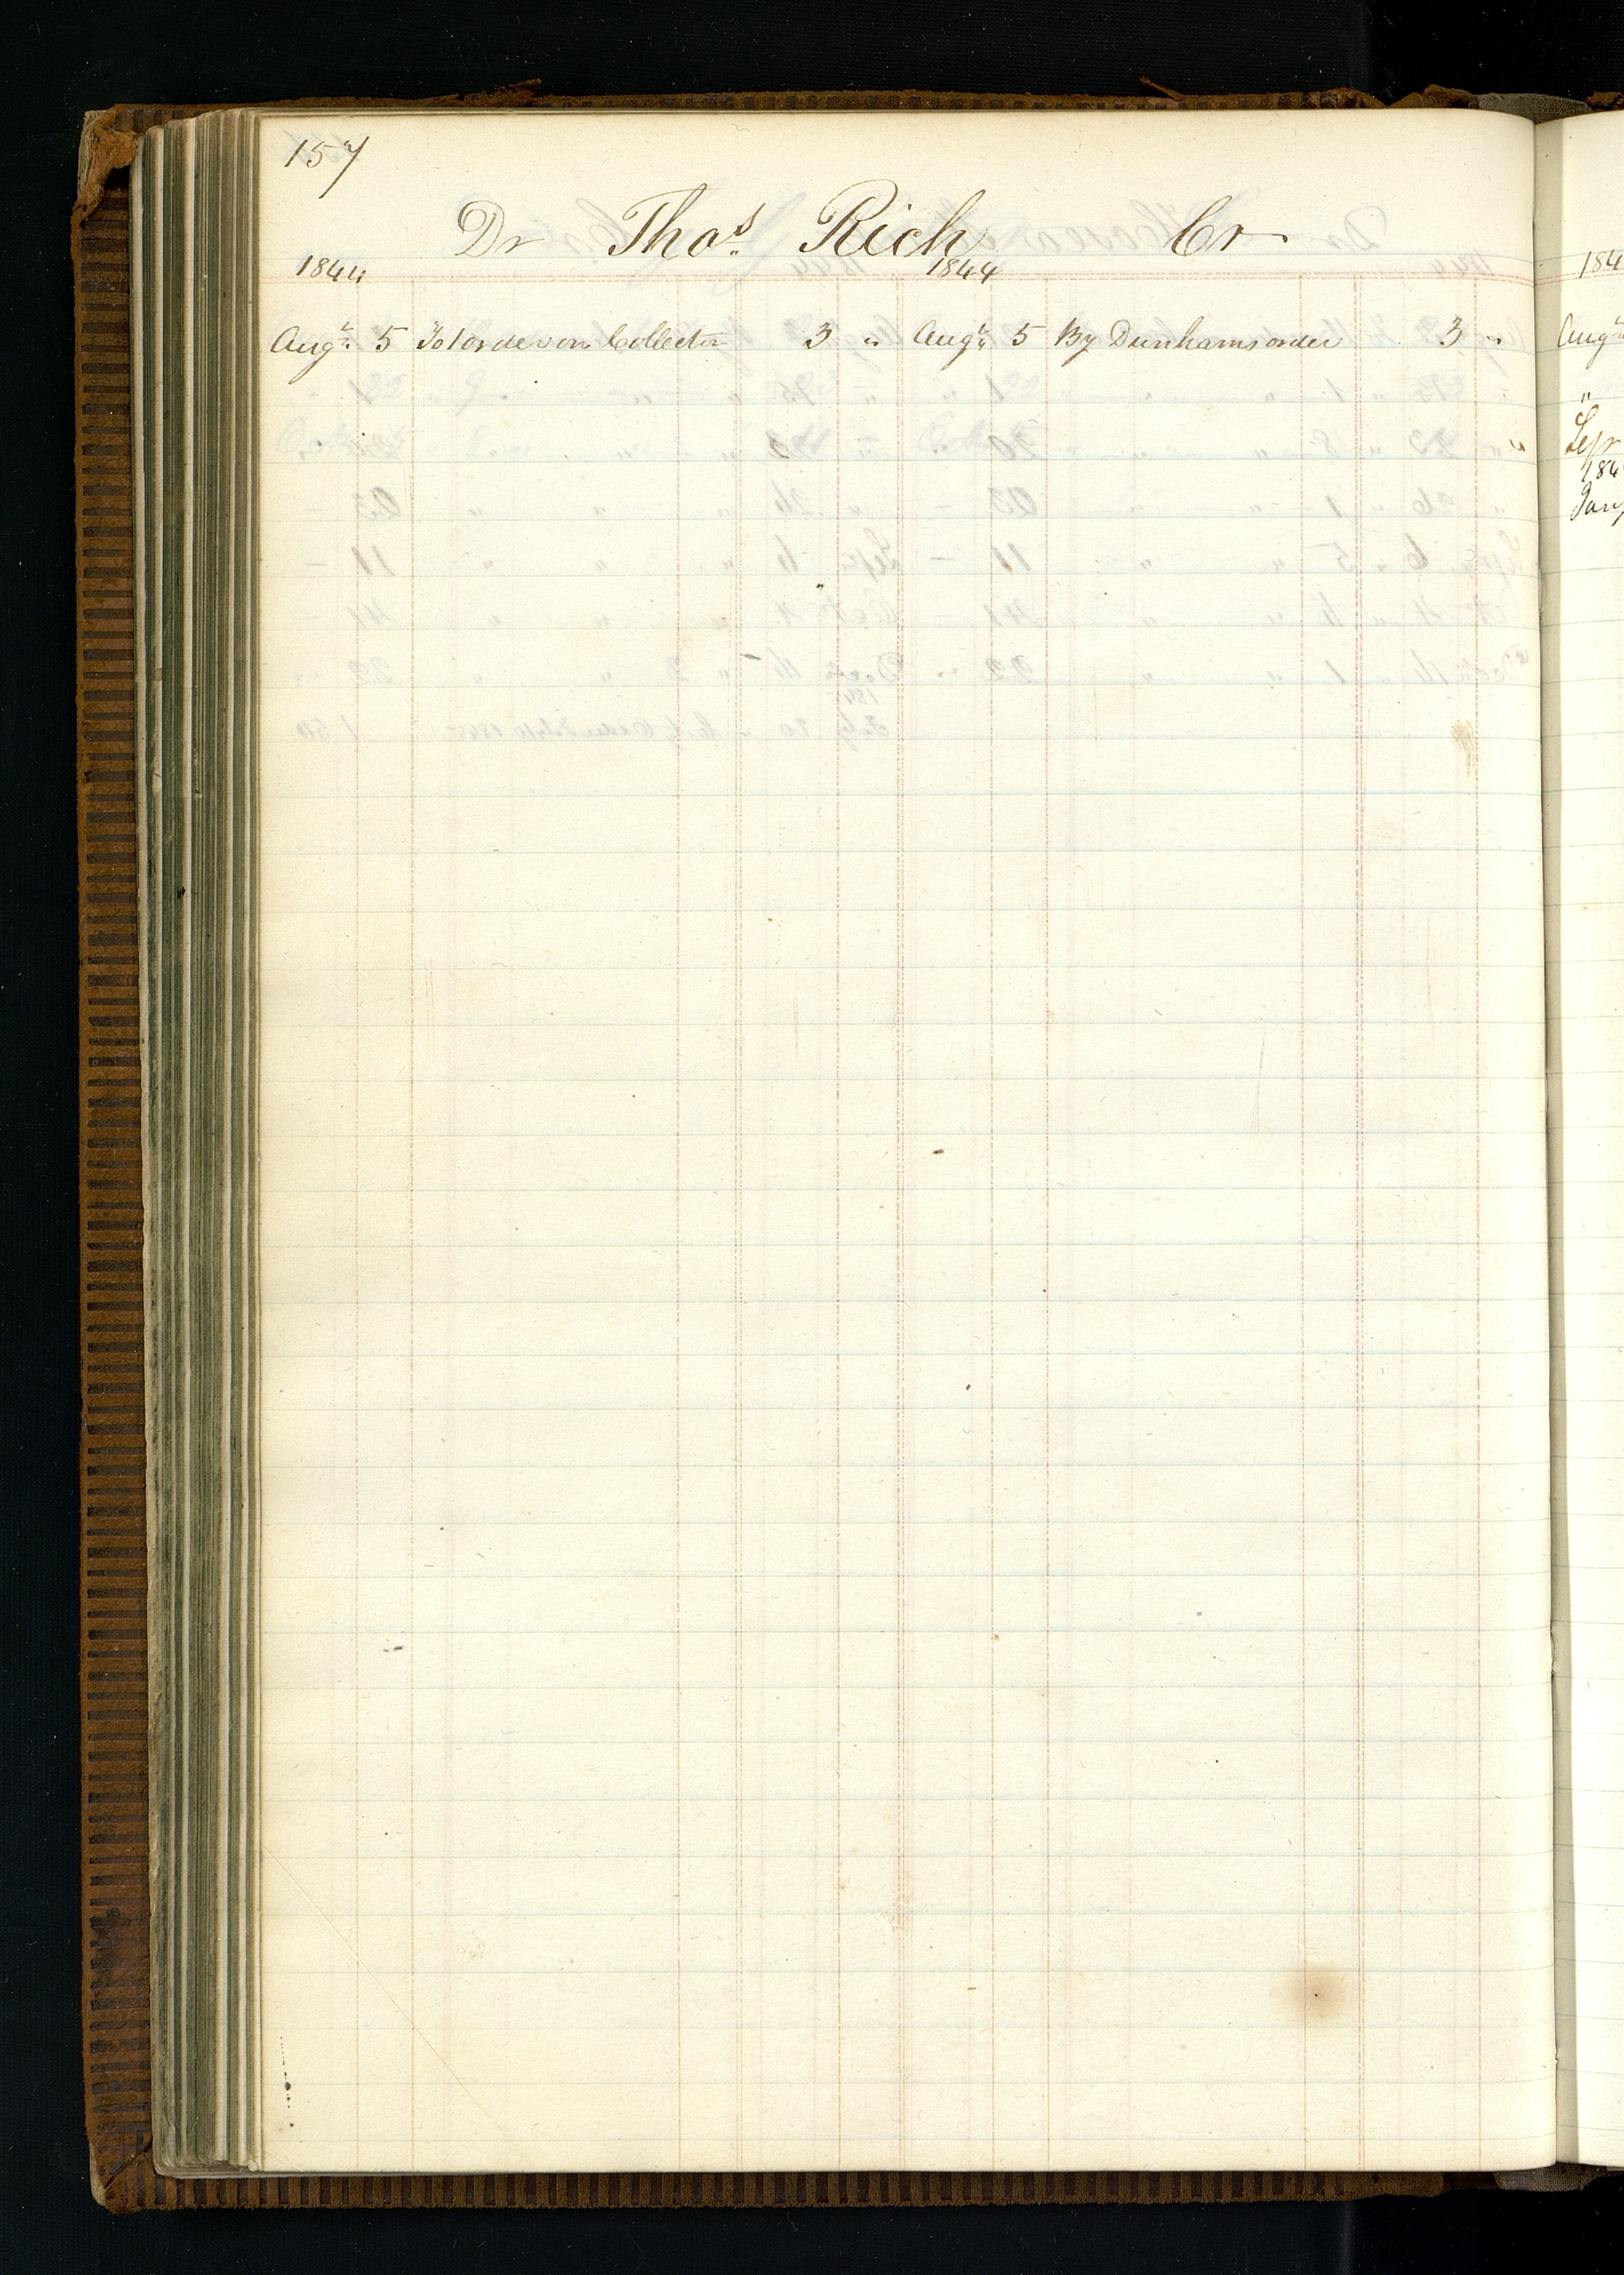 157
Dr Thos. Rich Cr
1844 1844
Augt. 5 To 1 order on Collector 3 " Augt. 5 By Dunhams order 3 "
184
Augt
"
Sept
184
Jany